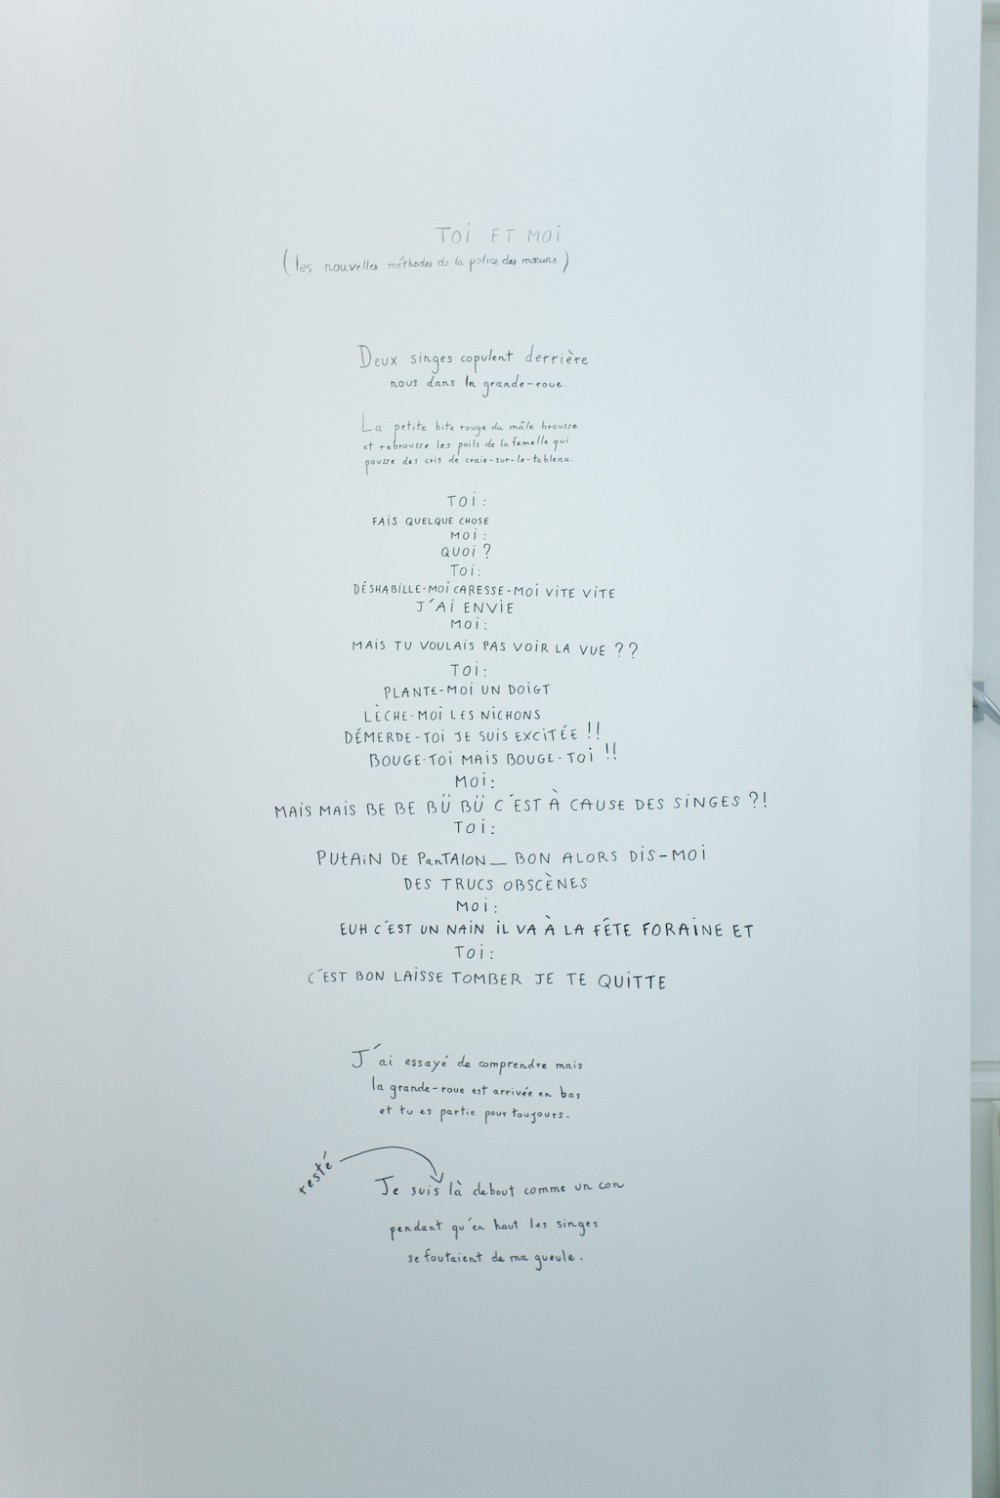 TOi ET MOi
(les nouvelles méthodes de la police des mœurs)
Deux singes copulent derrière
nous dans la grande-roue.
La petite bite rouge du mâle brousse
et rebrousse les poils de la femelle qui
pousse des cris de craie-sur-le-tableau.
TOi:
FAiS QUELQUE CHOSE
MOi:
QUOi ?
TOi:
DÉSHABILLE-MOi CARESSE-MOi ViTE ViTE
J'Ai ENViE
MOi:
MAiS TU VOULAiS PAS VOiR LA VUE ??
TOi:
PLANTE-MOi UN DOiGT
LÈCHE-MOi LES NiCHONS
DÉMERDE-TOi JE SUiS EXCiTÉE !!
BOUGE-TOi MAiS BOUGE-TOi !!
MOi:
MAiS MAiS BE BE BÜ BÜ C'EST À CAUSE DES SiNGES ?!
TOi:
PUtAiN DE PanTAlON_ BON ALORS DiS-MOi
DES TRUCS OBSCÈNES
MOi:
EUH C'EST UN NAiN iL VA À LA FÊTE FORAiNE ET
TOi:
C'EST BON LAiSSE TOMBER JE TE QUiTTE
J'ai essayé de comprendre mais
la grande-roue est arrivée en bas
et tu es partie pour toujours.
resté
Je suis là debout comme un con
pendant qu'en haut les singes
se foutaient de ma gueule.